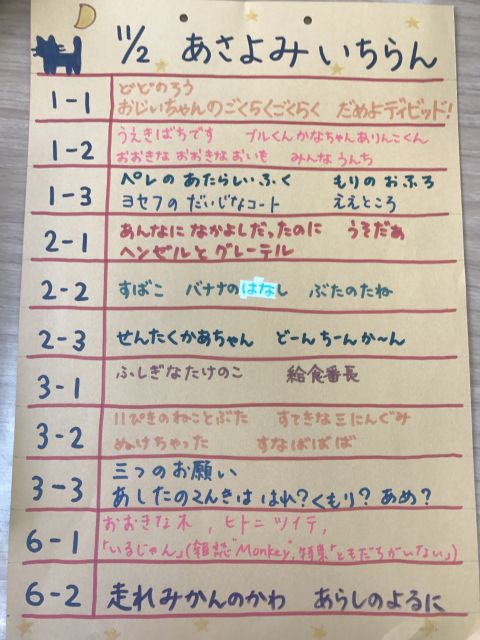 11/2 あさよみ いちらん
1-1 どどのろう
おじいちゃんのごくらくごくらく だめよデイビッド!
1-2 うえきばちです ブルくんかなちゃんありんこくん
おおきな おおきな おいも みんなうんち
1-3 ペレの あたらしいふく もりのおふろ
ヨセフの だいじなコート ええところ
2-1 あんなに なかよしだったのに うそだあ
ヘンゼルと グレーテル
2-2 すばこ バナナのはなし ぶたのたね
2-3 せんたくかあちゃん どーんちーんか〜ん
3-1 ふしぎなたけのこ 給食番長
3-2 11ぴきのねことぶた すてきな三にんぐみ
ぬけちゃった すなばばば
3-3 三つのお願い
あしたのてんきは はれ?くもり?あめ?
6-1 おおきな木, ヒトニツイテ,
「いるじゃん」(雑誌"Monkey",特集「ともだちがいない」)
6-2 走れみかんのかわ あらしのよるに